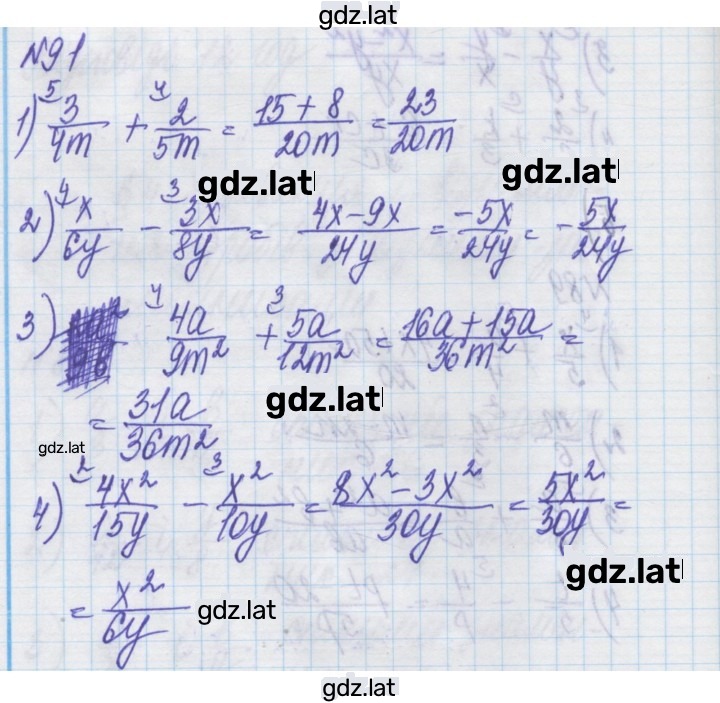 gdz.lat
№91
1) ⁵⁾3/4m + ⁴⁾2/5m = (15+8)/20m = 23/20m
gdz.lat gdz.lat
2) ⁴⁾x/6y - ³⁾3x/8y = (4x-9x)/24y = -5x/24y = -5x/24y
3) ⁴⁾4a/9m² + ³⁾5a/12m² = (16a+15a)/36m² =
= 31a/36m² gdz.lat
gdz.lat
4) ²⁾4x²/15y - ³⁾x²/10y = (8x²-3x²)/30y = 5x²/30y =
gdz.lat
= x²/6y gdz.lat
gdz.lat